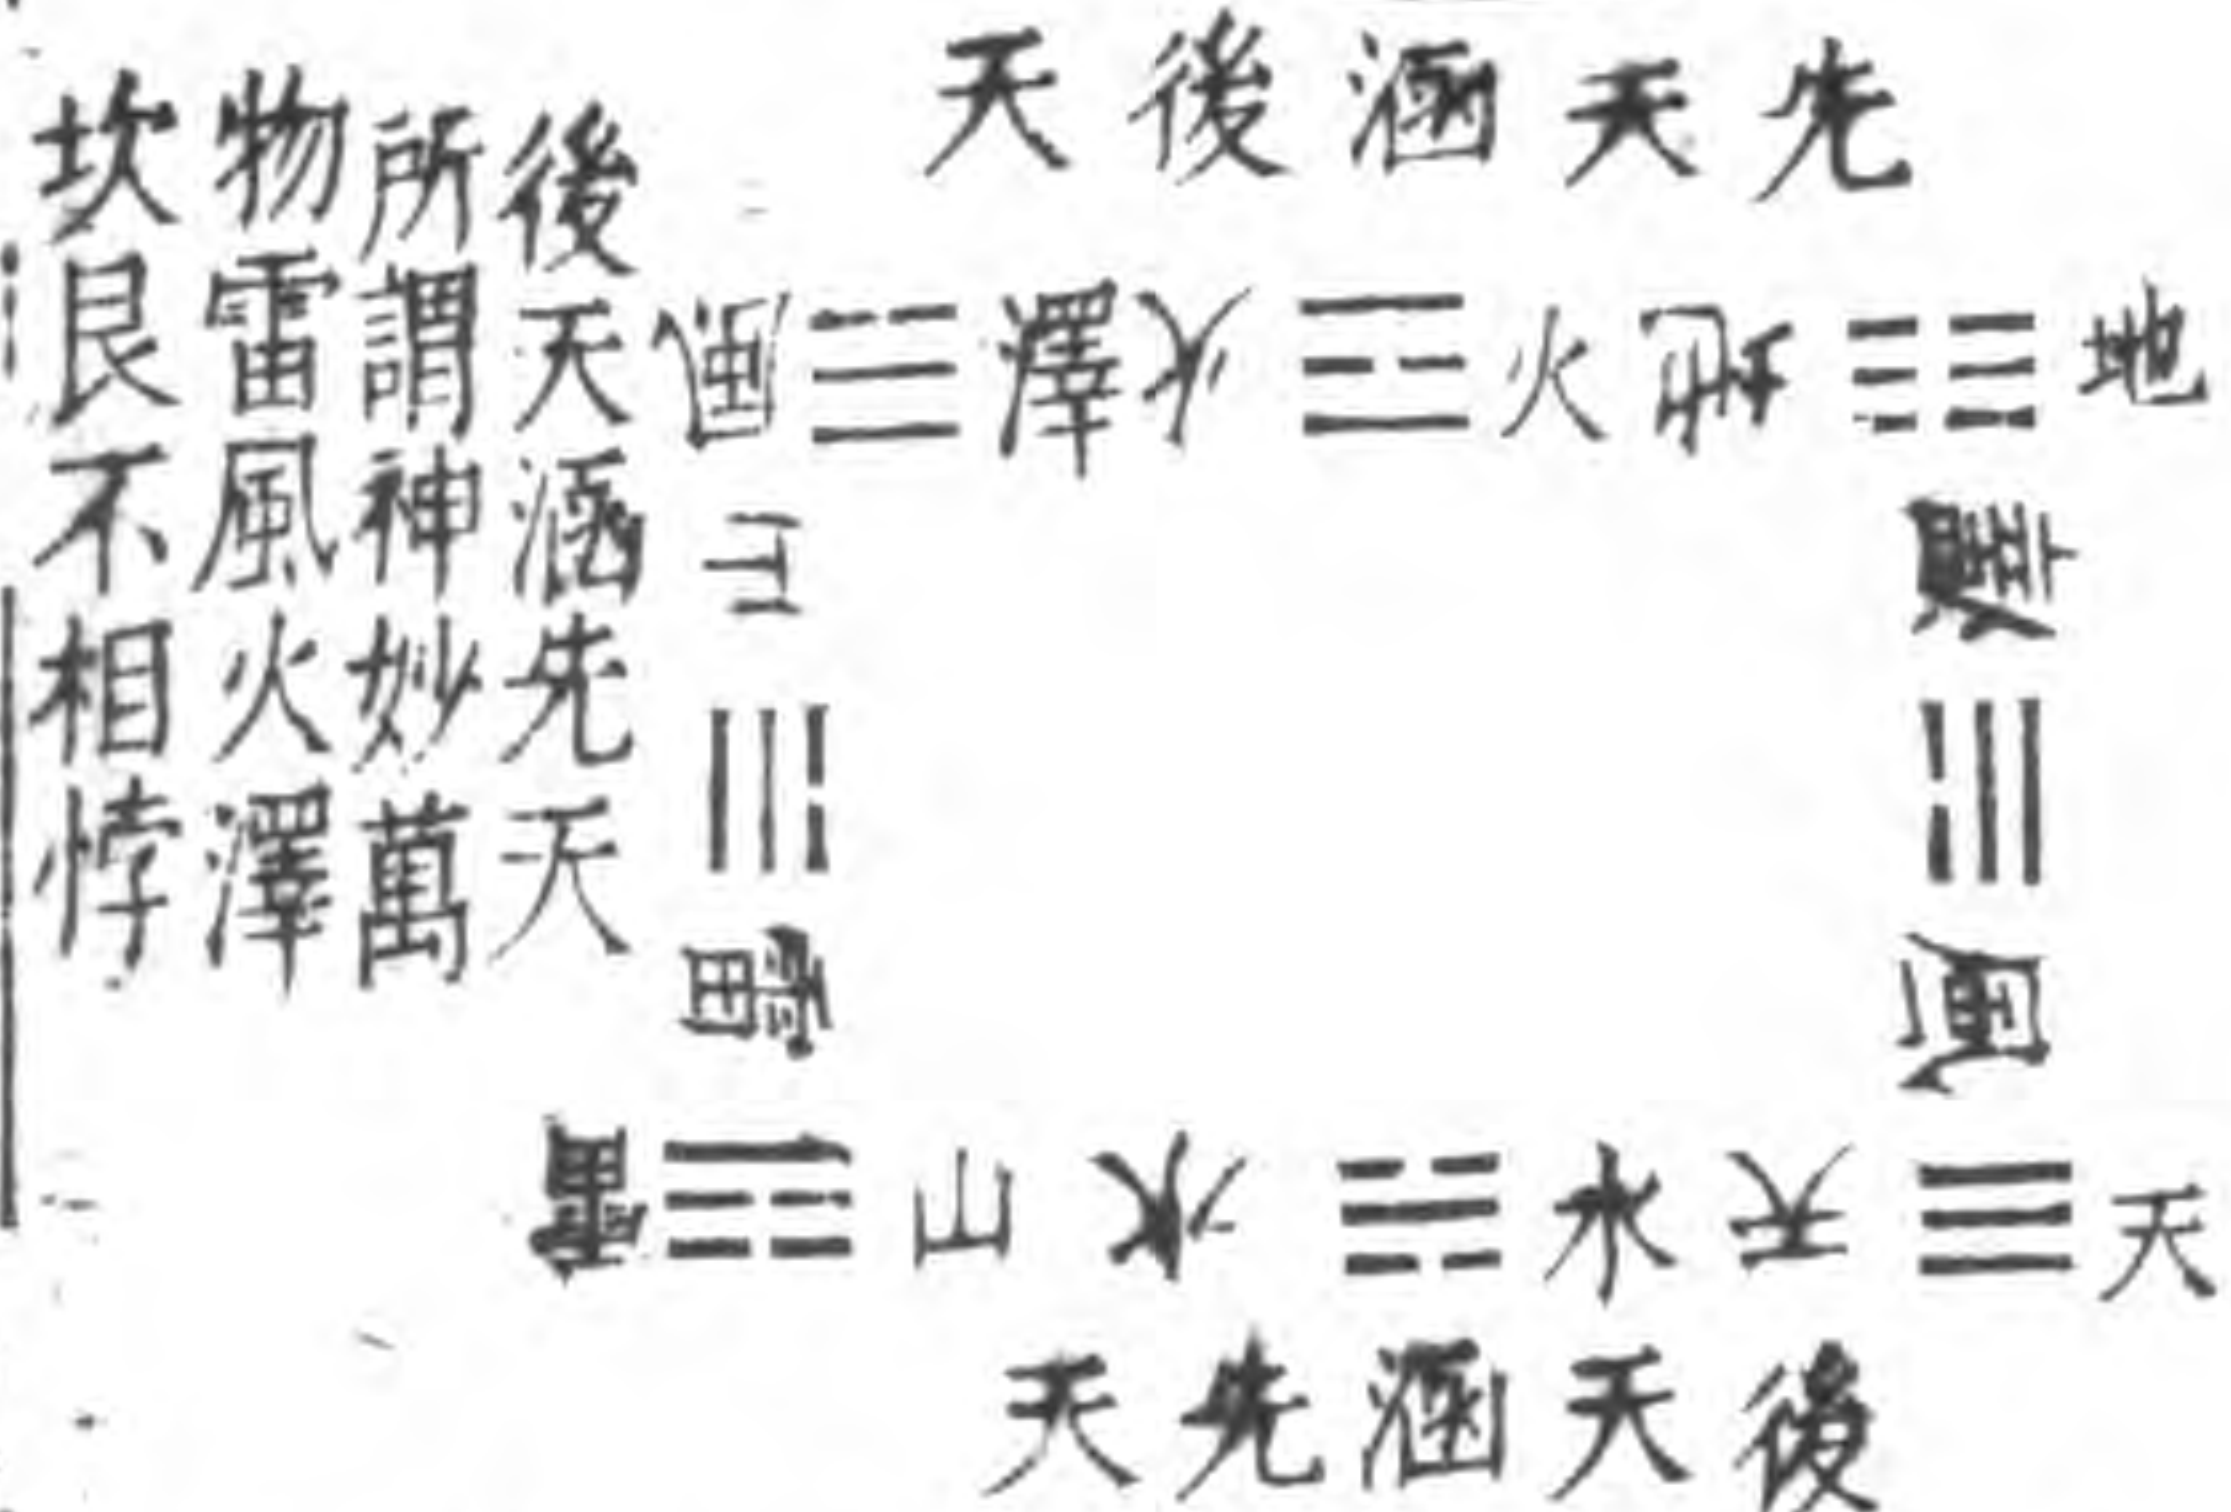 先天涵後天
地☷火☲火澤☱風
風
山
雷
天☰天水☵水山☶雷
後天涵先天
後天涵先天
所謂神妙萬
物雷風火澤
坎艮不相悖